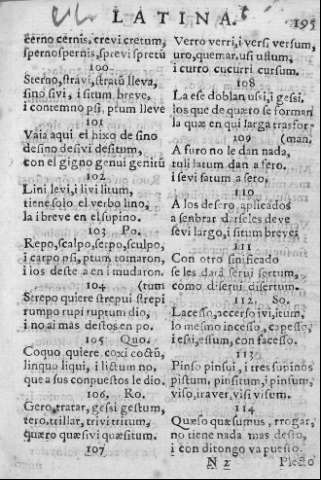 LATINA.
195
cerno cernis, crevi cretum,
sperno spernis, sprevi spretū
100
Sterno, stravi, stratū lleva,
sino sivi, i situm breve,
i contemno psi, ptum lleve
101
Vaia aqui el hixo de sino
desino desivi desitum,
con el gigno genui genitū
102
Lini levi, i livi litum,
tiene solo el verbo lino,
la i breve en el supino.
103 Po.
Repo, scalpo, serpo, sculpo,
i carpo psi, ptum tomaron,
i los deste a en i mudaron.
104 (tum
Strepo quiere strepui strepi
rumpo rupi ruptum dio,
i no ai mas destos en po.
105 Quo.
Coquo quiere coxi coctū,
linquo liqui, i lictum no,
que a sus conpuestos le dio.
106. Ro.
Gero, tratar, gessi gestum,
tero, trillar, trivi tritum,
quæro quæsivi quæsitum.
107
Verro verri, i versi versum,
uro, quemar, usi ustum,
i curro cucurri cursum.
108
La ese doblan ussi, i gessi,
los que de quæro se forman
la quæ en qui larga trasfor
109 (man.
A furo no le dan nada,
tuli latum dan a fero,
i sevi satum a sero.
110
A los de sero, aplicados
a senbrar darseles deve
sevi largo, i situm breve;
111
Con otro sinificado
se les dará serui sertum,
como disérui disertum.
112. So.
Lacesso, accerso ivi, itum,
lo mesmo incesso, capesso,
i essi, essum, con facesso.
113
Pinso pinsui, i tres supinos
pistum, pinsitum, i pinsum,
viso, ir a ver, visi visum.
114
Quæso quæsumus, rrogar,
no tiene nada mas desto,
i con ditongo va puesto.
N 2 Plecto